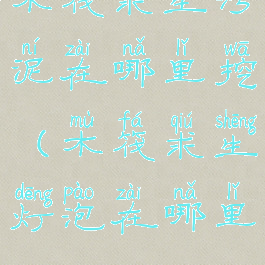 ní zài nǎ lǐ wā
泥在哪里挖
mù fá qiú shēng
（木筏求生
dēng pào zài nǎ lǐ
灯泡在哪里